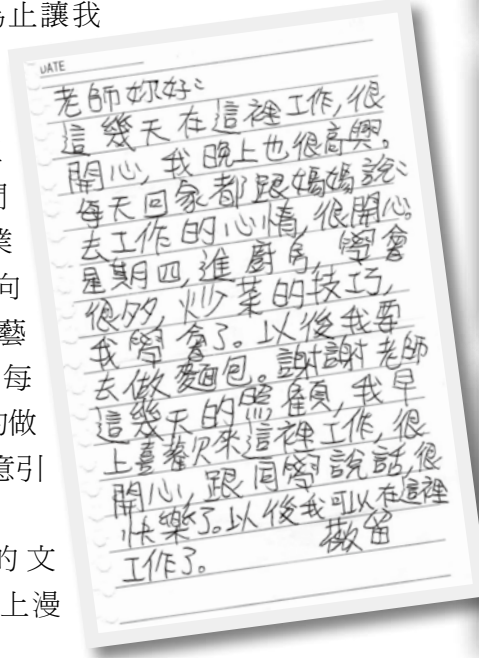 止讓我
業
向
藝
每
做
意引
的文
上漫
DATE
老師妳好:
這幾天在這裡工作,很
開心,我晚上也很高興。
每天回家都跟媽媽說:
去工作的心情,很開心。
星期四,進廚房,學會
很多,炒菜的技巧,
我學會了。以後我要
去做麵包。謝謝老師
這幾天的照顧,我早
上喜歡來這裡工作,很
開心,跟同學說話,很
快樂了。以後我可以在這裡
工作了。 敬留